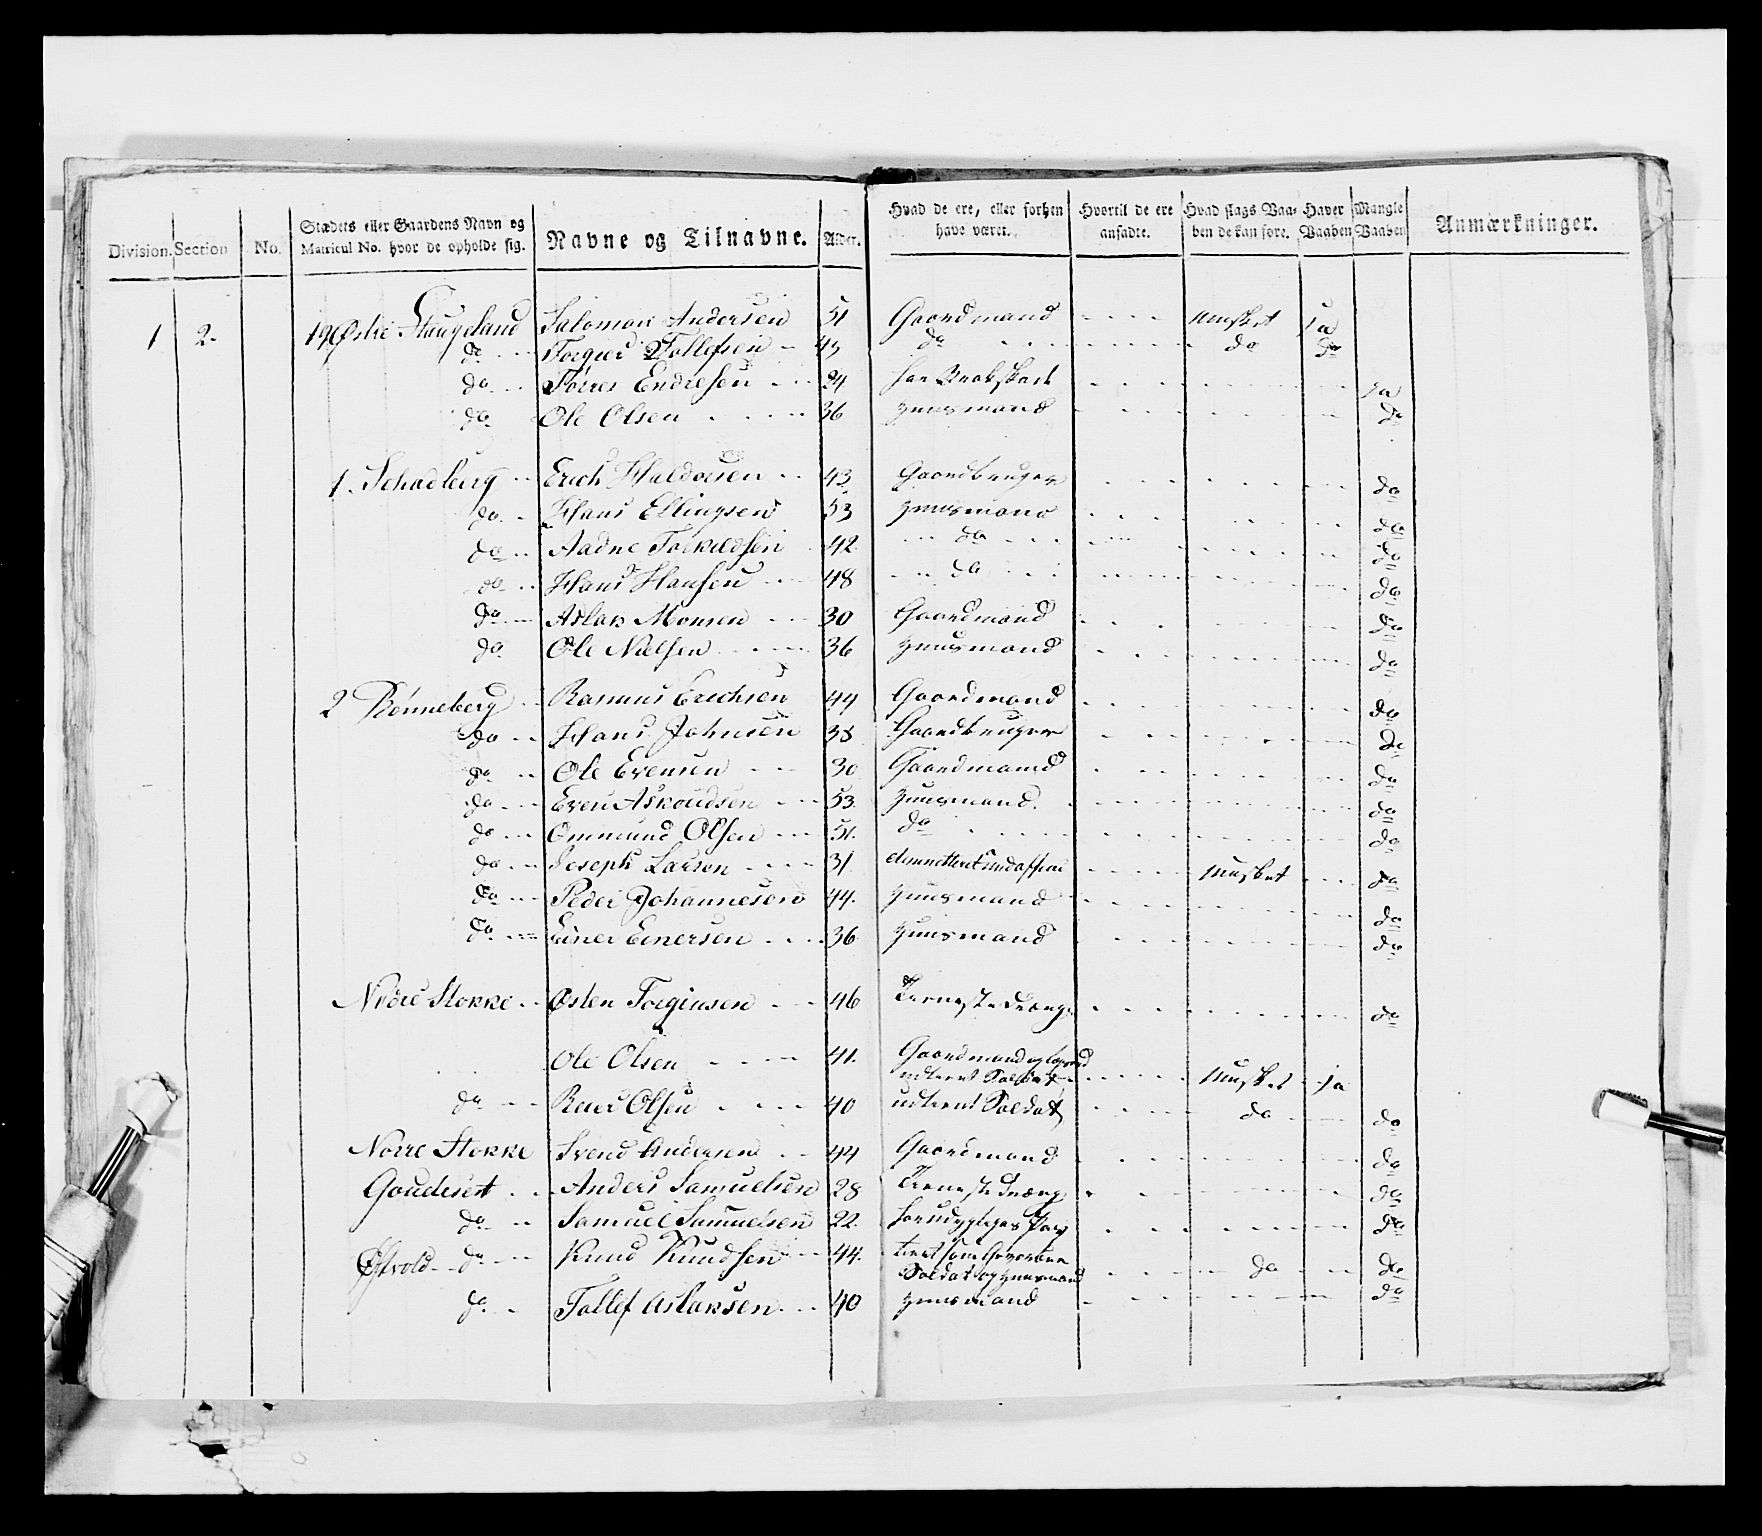 Division. Section No. Stædets eller Gaardens Navn og Matricul No. hvor de opholde sig. Navne og Tilnavne. Alder. Hvad de ere, eller forhen have været. Hvortil de ere ansadte. Hvad slags Vaaben de kan føre. Haver Vaaben Mangle Vaaben Anmærkninger.
1 2. 19 Østre Haugeland Salomon Andersen 51 Gaardmand musket ja
do Torger Tollefsen 43 do do do
do Tørres Endresen 24 ja
do Ole Olsen 36 Huusmand do
1. Schadberg Erich Haldorsen 43 Gaardbruger do
do Hans Ellingsen 53 Huusmand do
do Aadne Torkildsen 42. do do
do Hans Hansen 48 do do
do Aslak Monsen 30 Gaardmand do
do Ole Nielsen 36 Huusmand do
2 Rønneberg Rasmus Erichsen 44 Gaardmand do
do Hans Johnsen 38 Gaardbruger do
do Ole Evensen 30 Gaardmand do
do Even Asmoudsen 53. Huusmand. do
do Ommund Olsen 51. do do
do Joseph Larsen 31 musket do
do Peder Johannesen 44. Huusmand do
do Einer Einersen 36 Huusmand do
Nedre Stokke Østen Torginsen 46 Tienestedreng do
Ole Olsen 41. Gaardmand og
udtient Soldat musket ja
do Reier Olsen 40 udtient Soldat do do
Norre Stokke Svend Andersen 44 Gaardmand do
Goudeset Anders Samuelsen 28 Tieneste dreng do
do Samuel Samuelsen 22. do
Østvold do Knud Knudsen 44. tient som Gevorben
Soldat og Huusmand do do
do Tollef Aslaksen 40 Huusmand do